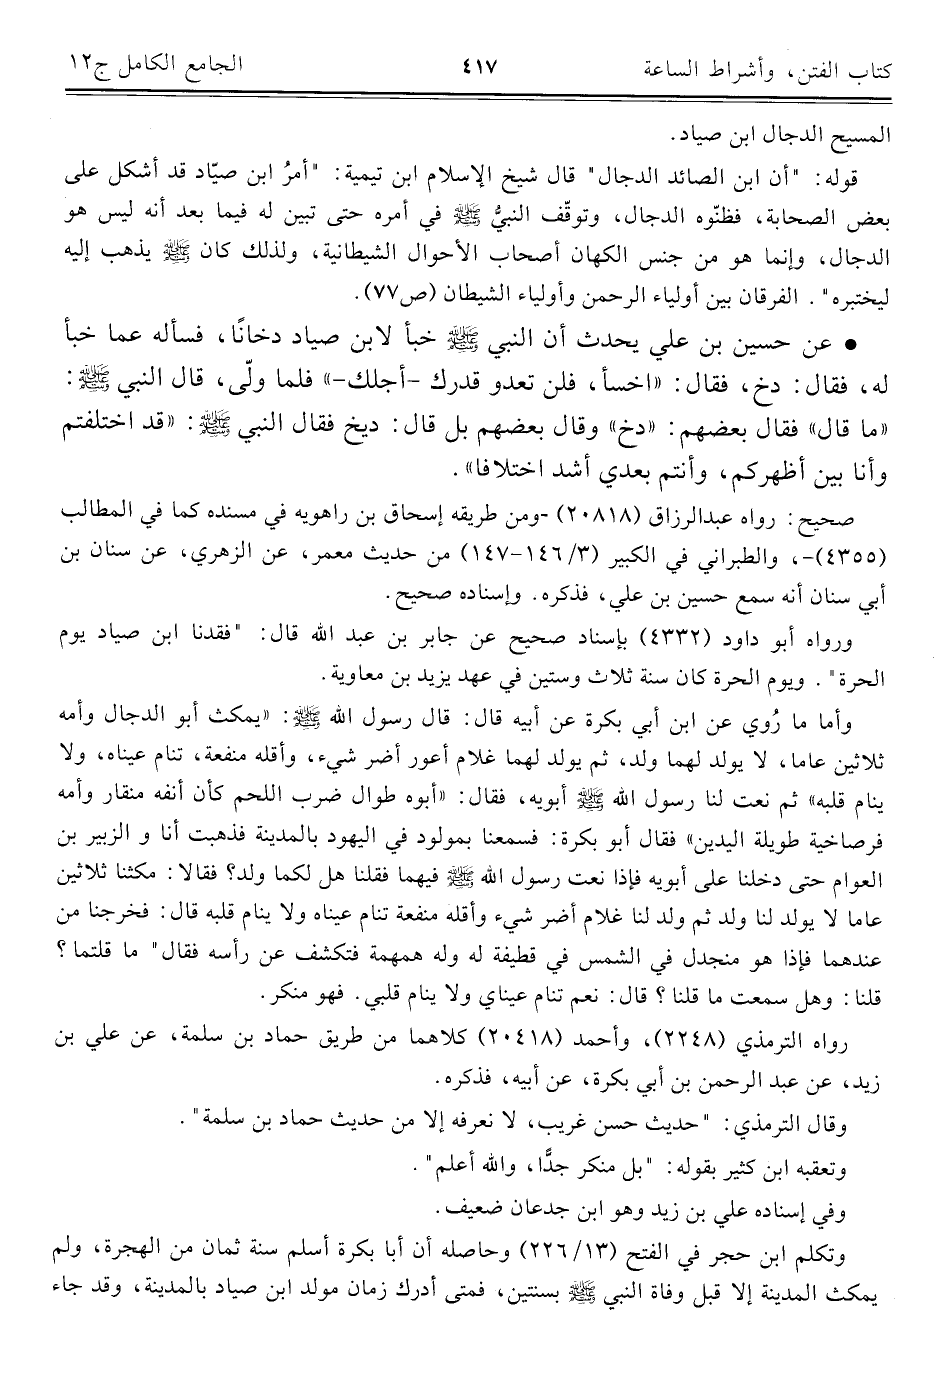 كتاب الفتن، وأشراط الساعة ٤١٧ الجامع الكامل ج١٢
المسيح الدجال ابن صياد.
قوله: "أن ابن الصائد الدجال" قال شيخ الإسلام ابن تيمية: "أمرُ ابن صيّاد قد أشكل على
بعض الصحابة، فظنّوه الدجال، وتوقّف النبيُّ ﷺ في أمره حتى تبين له فيما بعد أنه ليس هو
الدجال، وإنما هو من جنس الكهان أصحاب الأحوال الشيطانية، ولذلك كان ﷺ يذهب إليه
ليختبره". الفرقان بين أولياء الرحمن وأولياء الشيطان (ص٧٧).
• عن حسين بن علي يحدث أن النبي ﷺ خبأ لابن صياد دخانًا، فسأله عما خبأ
له، فقال: دخ، فقال: «اخسأ، فلن تعدو قدرك -أجلك-» فلما ولّى، قال النبي ﷺ:
«ما قال» فقال بعضهم: «دخ» وقال بعضهم بل قال: ديخ فقال النبي ﷺ: «قد اختلفتم
وأنا بين أظهركم، وأنتم بعدي أشد اختلافا».
صحيح: رواه عبدالرزاق (٢٠٨١٨) -ومن طريقه إسحاق بن راهويه في مسنده كما في المطالب
(٤٣٥٥)-، والطبراني في الكبير (٣/ ١٤٦-١٤٧) من حديث معمر، عن الزهري، عن سنان بن
أبي سنان أنه سمع حسين بن علي، فذكره. وإسناده صحيح.
ورواه أبو داود (٤٣٣٢) بإسناد صحيح عن جابر بن عبد الله قال: "فقدنا ابن صياد يوم
الحرة". ويوم الحرة كان سنة ثلاث وستين في عهد يزيد بن معاوية.
وأما ما رُوي عن ابن أبي بكرة عن أبيه قال: قال رسول الله ﷺ: «يمكث أبو الدجال وأمه
ثلاثين عاما، لا يولد لهما ولد، ثم يولد لهما غلام أعور أضر شيء، وأقله منفعة، تنام عيناه، ولا
ينام قلبه» ثم نعت لنا رسول الله ﷺ أبويه، فقال: «أبوه طوال ضرب اللحم كأن أنفه منقار وأمه
فرضاخية طويلة اليدين» فقال أبو بكرة: فسمعنا بمولود في اليهود بالمدينة فذهبت أنا و الزبير بن
العوام حتى دخلنا على أبويه فإذا نعت رسول الله ﷺ فيهما فقلنا هل لكما ولد؟ فقالا: مكثنا ثلاثين
عاما لا يولد لنا ولد ثم ولد لنا غلام أضر شيء وأقله منفعة تنام عيناه ولا ينام قلبه قال: فخرجنا من
عندهما فإذا هو منجدل في الشمس في قطيفة له وله همهمة فتكشف عن رأسه فقال" ما قلتما؟
قلنا: وهل سمعت ما قلنا؟ قال: نعم تنام عيناي ولا ينام قلبي. فهو منكر.
رواه الترمذي (٢٢٤٨)، وأحمد (٢٠٤١٨) كلاهما من طريق حماد بن سلمة، عن علي بن
زيد، عن عبد الرحمن بن أبي بكرة، عن أبيه، فذكره.
وقال الترمذي: "حديث حسن غريب، لا نعرفه إلا من حديث حماد بن سلمة".
وتعقبه ابن كثير بقوله: "بل منكر جدًّا، والله أعلم".
وفي إسناده علي بن زيد وهو ابن جدعان ضعيف.
وتكلم ابن حجر في الفتح (١٣/ ٢٢٦) وحاصله أن أبا بكرة أسلم سنة ثمان من الهجرة، ولم
يمكث المدينة إلا قبل وفاة النبي ﷺ بسنتين، فمتى أدرك زمان مولد ابن صياد بالمدينة، وقد جاء